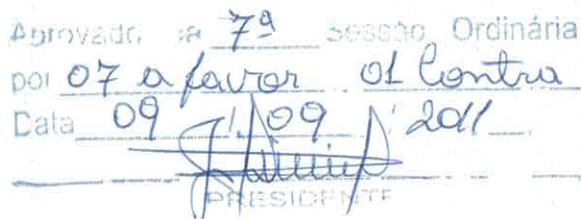 Aprovado na 7ª Sessão Ordinária
por 07 a favor 01 Contra
Data 09 / 09 / 2011
PRESIDENTE